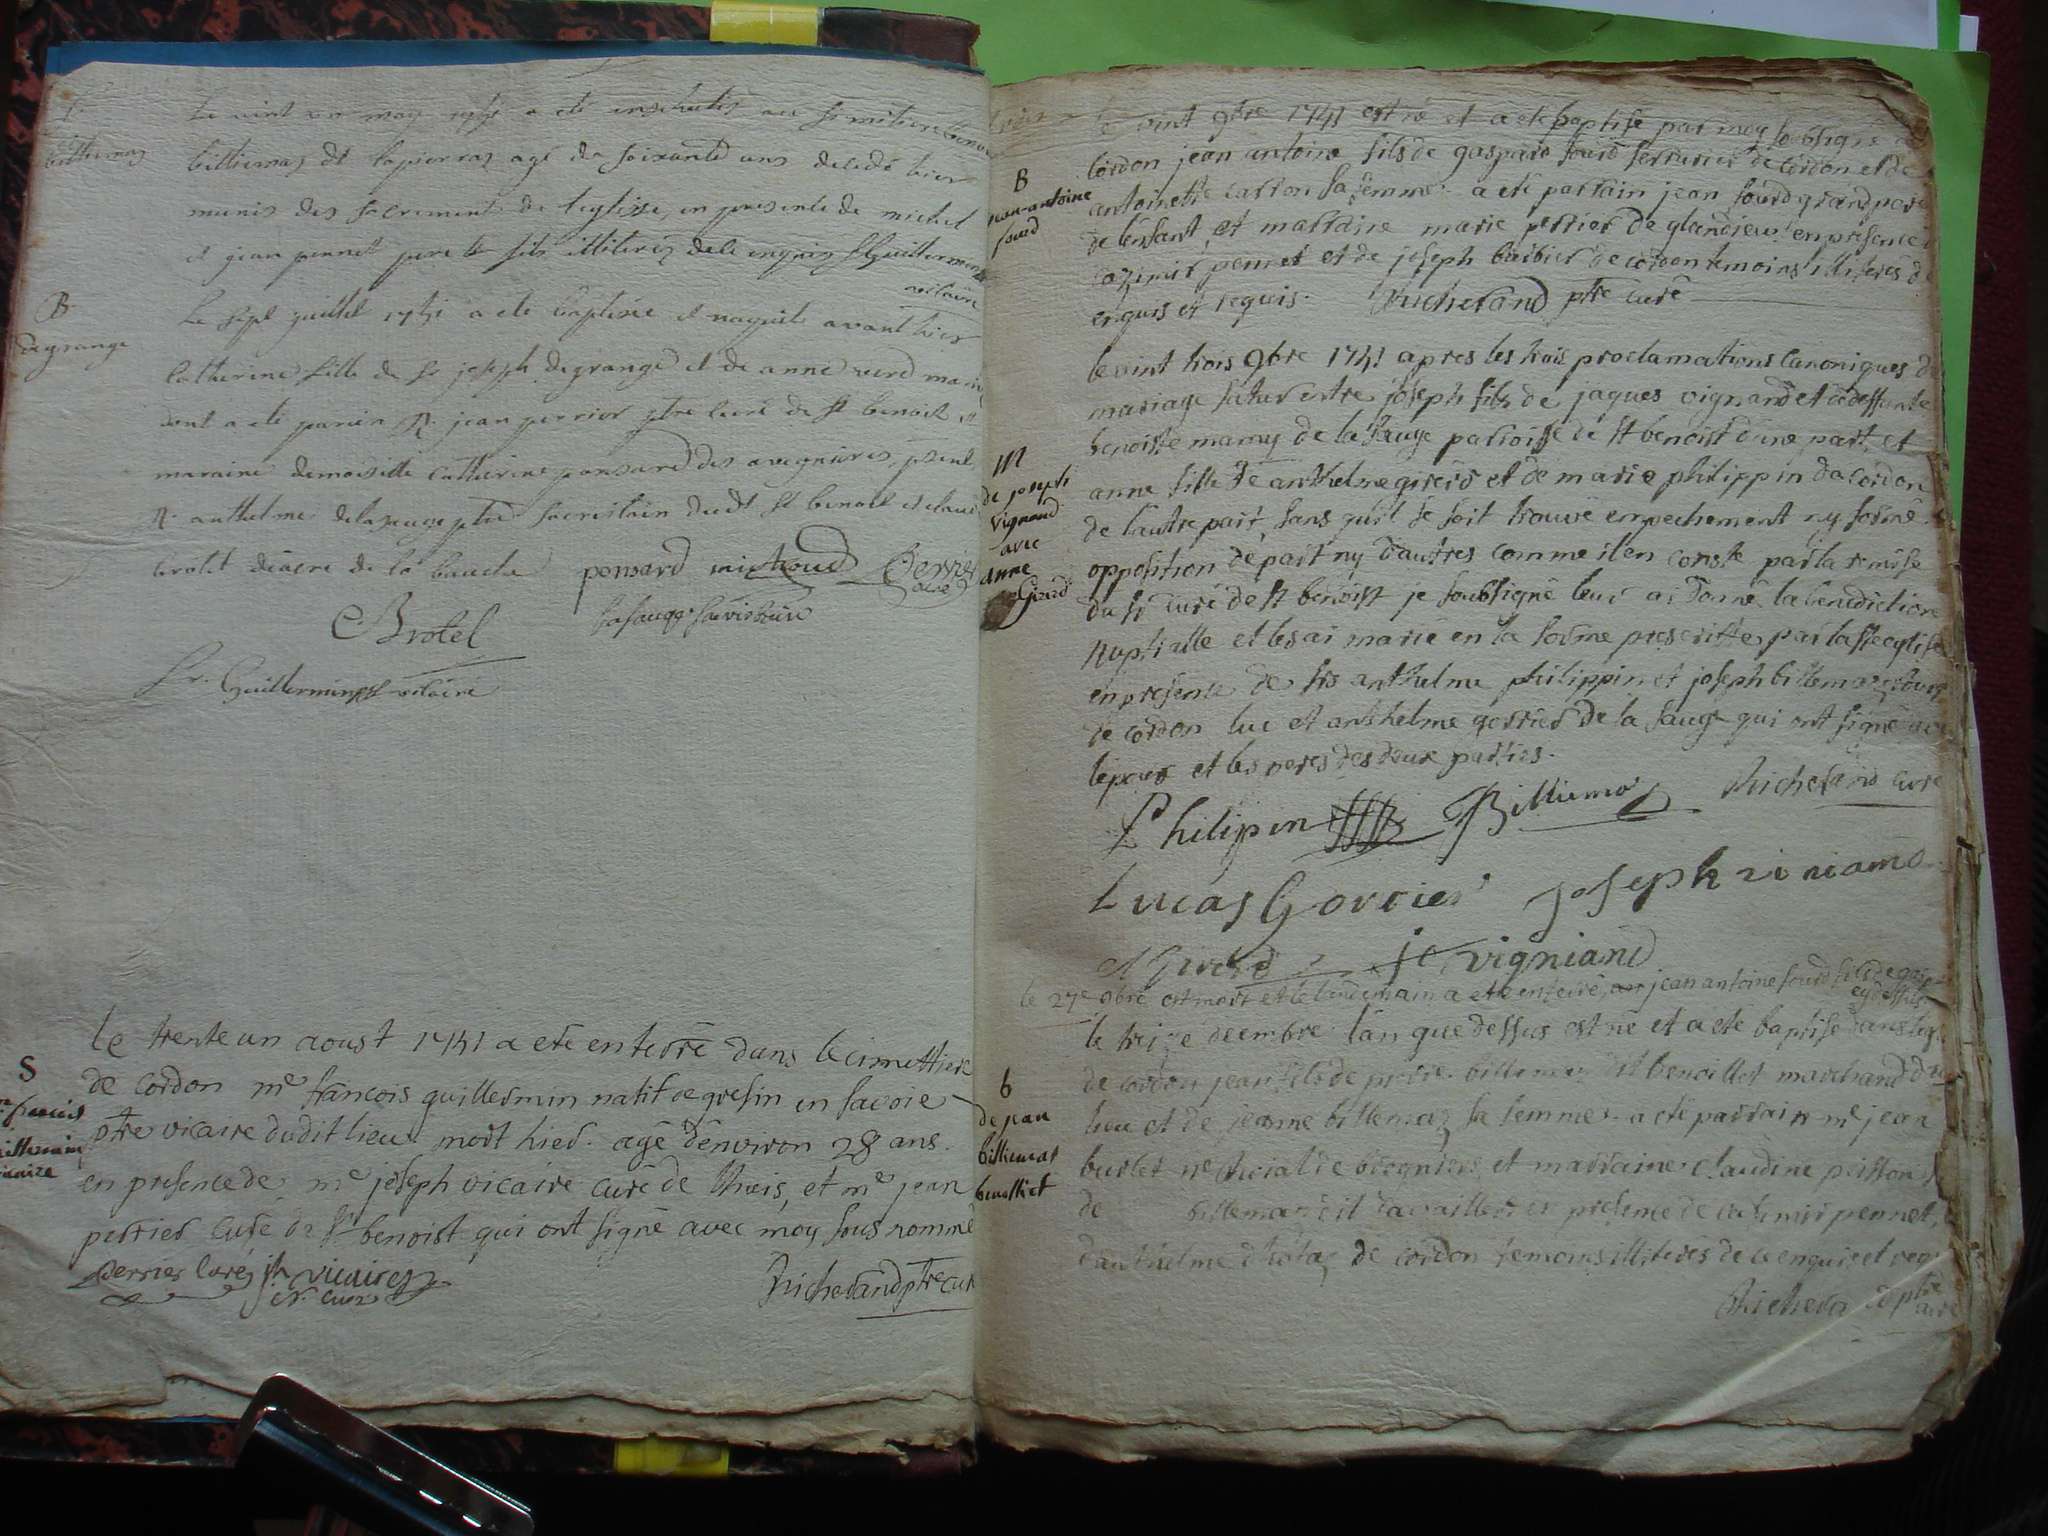 S
billiemaz
Le vint un may 1741 a eté enseveli au simetiere
billiemaz dt lapierraz agé de soixante ans decedé hier
munis des sacrement de leglisse, en presente de michel
et jean pennet pere et fils illiterez de ce enquis Guillermin
vicaire
B
degrange
Le sept juillet 1741 a eté baptisée et naquit avant hier
Catherine fille de Sr joseph degrange et de anne
dont a eté parein R. jean perrier ptre curé de st benoit et
maraine demoiselle Catherine ponsard des avegnieres, psent
R. anthelme delasauge ptre sacristain dudt st benoit et claude
brotet diacre de la bauche ponsard michoud Perrier
curé
lasauge sacristain
C Brotel
fr. Guillermin vicaire
S
françois
guillermin
vicaire
le trente un aoust 1741 a eté enterré dans le cimettiere
de cordon me francois guillermin natif de gresin en savoie
ptre vicaire dudit lieu mort hier. agé denviron 28 ans.
en presence de me joseph vicaire curé de thuis, et me jean
perrier curé de st benoist qui ont signé avec moy sous nommé
perrier curé jh vicaire
curé
Richerand ptre curé
B
jean-antoine
sourd
le vint 9bre 1741 est né et a eté baptisé par moy soubsigné
cordon jean antoine fils de gaspard sourd serrurier de cordon et de
antoinette carron sa femme. a eté parrain jean sourd grand pere
de lenfant, et marraine marie perrier de glandieu. en presence
cazimir pennet et de joseph barbier de cordon temoins illiteres de
enquis et requis. Richerand ptre curé
M
de joseph
vignand
avec
anne
Girerd
le vint trois 9bre 1741 apres les trois proclamations canoniques du
mariage futur entre joseph fils de jaques vignand et de deffunte
benoiste mamy de la sauge parroisse de st benoist d'une part, et
anne fille de anthelme girerd et de marie philippin de cordon
de l'autre part, sans qu'il se soit trouvé empechement ny formé
opposition de part ny d'autres comme il en conste par la remise
du sr curé de st benoist je soubsigné leur ai donné la benediction
nuptialle et les ai marié en la forme prescritte par la ste eglise
en presence de srs anthelme philippin et joseph billiemaz tous
de cordon luc et anthelme gorrier de la sauge qui ont signé avec
lepoux et les peres des deux parties.
Philipin Billiemaz Richerand curé
Lucas Gorrier joseph
A Girerd je vigniand
le 27e 9bre est mort et le lendemain a eté enterré, jean antoine sourd fils de gasp
cy dessus
6
de jean
billiemaz
benoillet
le treize decembre l'an que dessus est né et a eté baptisé dans leg
de cordon jean fils de pierre billiemaz dit benoillet marchand du
lieu et de jeanne billiemaz sa femme. a eté parrain me jean
burlet de bregniers et marraine claudine poisson
de billiemaz dit en presence de casimir pennet,
danthelme de cordon temoins illiteres de ce enquis et req
Richerand ptre
curé